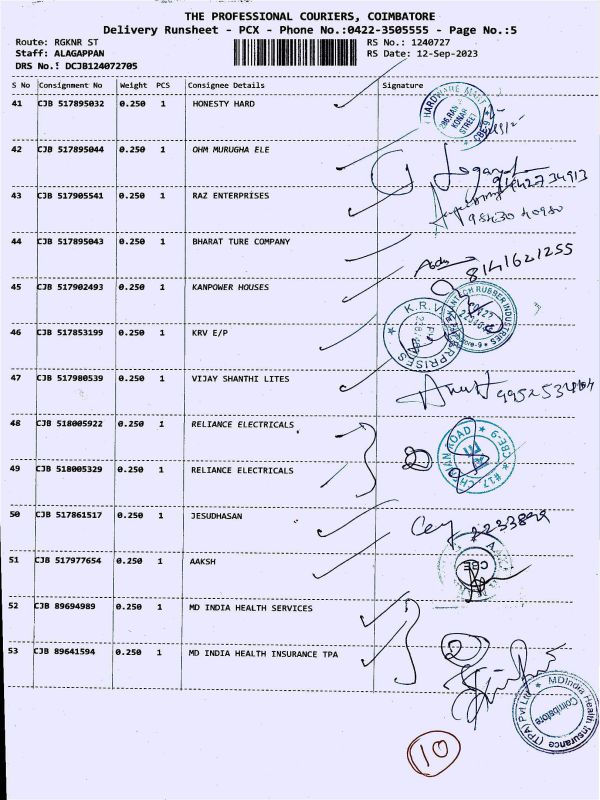 THE PROFESSIONAL COURIERS, COIMBATORE
Delivery Runsheet - PCX - Phone No.:0422-3505555 - Page No.:5
Route: RGKNR ST RS No.: 1240727
Staff: ALAGAPPAN RS Date: 12-Sep-2023
DRS No.: DCJB124072705
S No Consignment No Weight PCS Consignee Details Signature
41 CJB 517895032 0.250 1 HONESTY HARD
HARDWARE MART
KONAR
STREET
CBE-9
42 CJB 517895044 0.250 1 OHM MURUGHA ELE
9442734913
43 CJB 517905541 0.250 1 RAZ ENTERPRISES
98430 40980
44 CJB 517895043 0.250 1 BHARAT TURE COMPANY
8141621255
45 CJB 517902493 0.250 1 KANPOWER HOUSES
RUBBER INDUSTRIES
46 CJB 517853199 0.250 1 KRV E/P
K.R.V
47 CJB 517980539 0.250 1 VIJAY SHANTHI LITES
48 CJB 518005922 0.250 1 RELIANCE ELECTRICALS
2
ROAD
CBE-9
#17
49 CJB 518005329 0.250 1 RELIANCE ELECTRICALS
50 CJB 517861517 0.250 1 JESUDHASAN
51 CJB 517977654 0.250 1 AAKSH
CBE
52 CJB 89694989 0.250 1 MD INDIA HEALTH SERVICES
53 CJB 89641594 0.250 1 MD INDIA HEALTH INSURANCE TPA
2
MDIndia Health Insurance (TPA) Pvt Ltd
Coimbatore
10